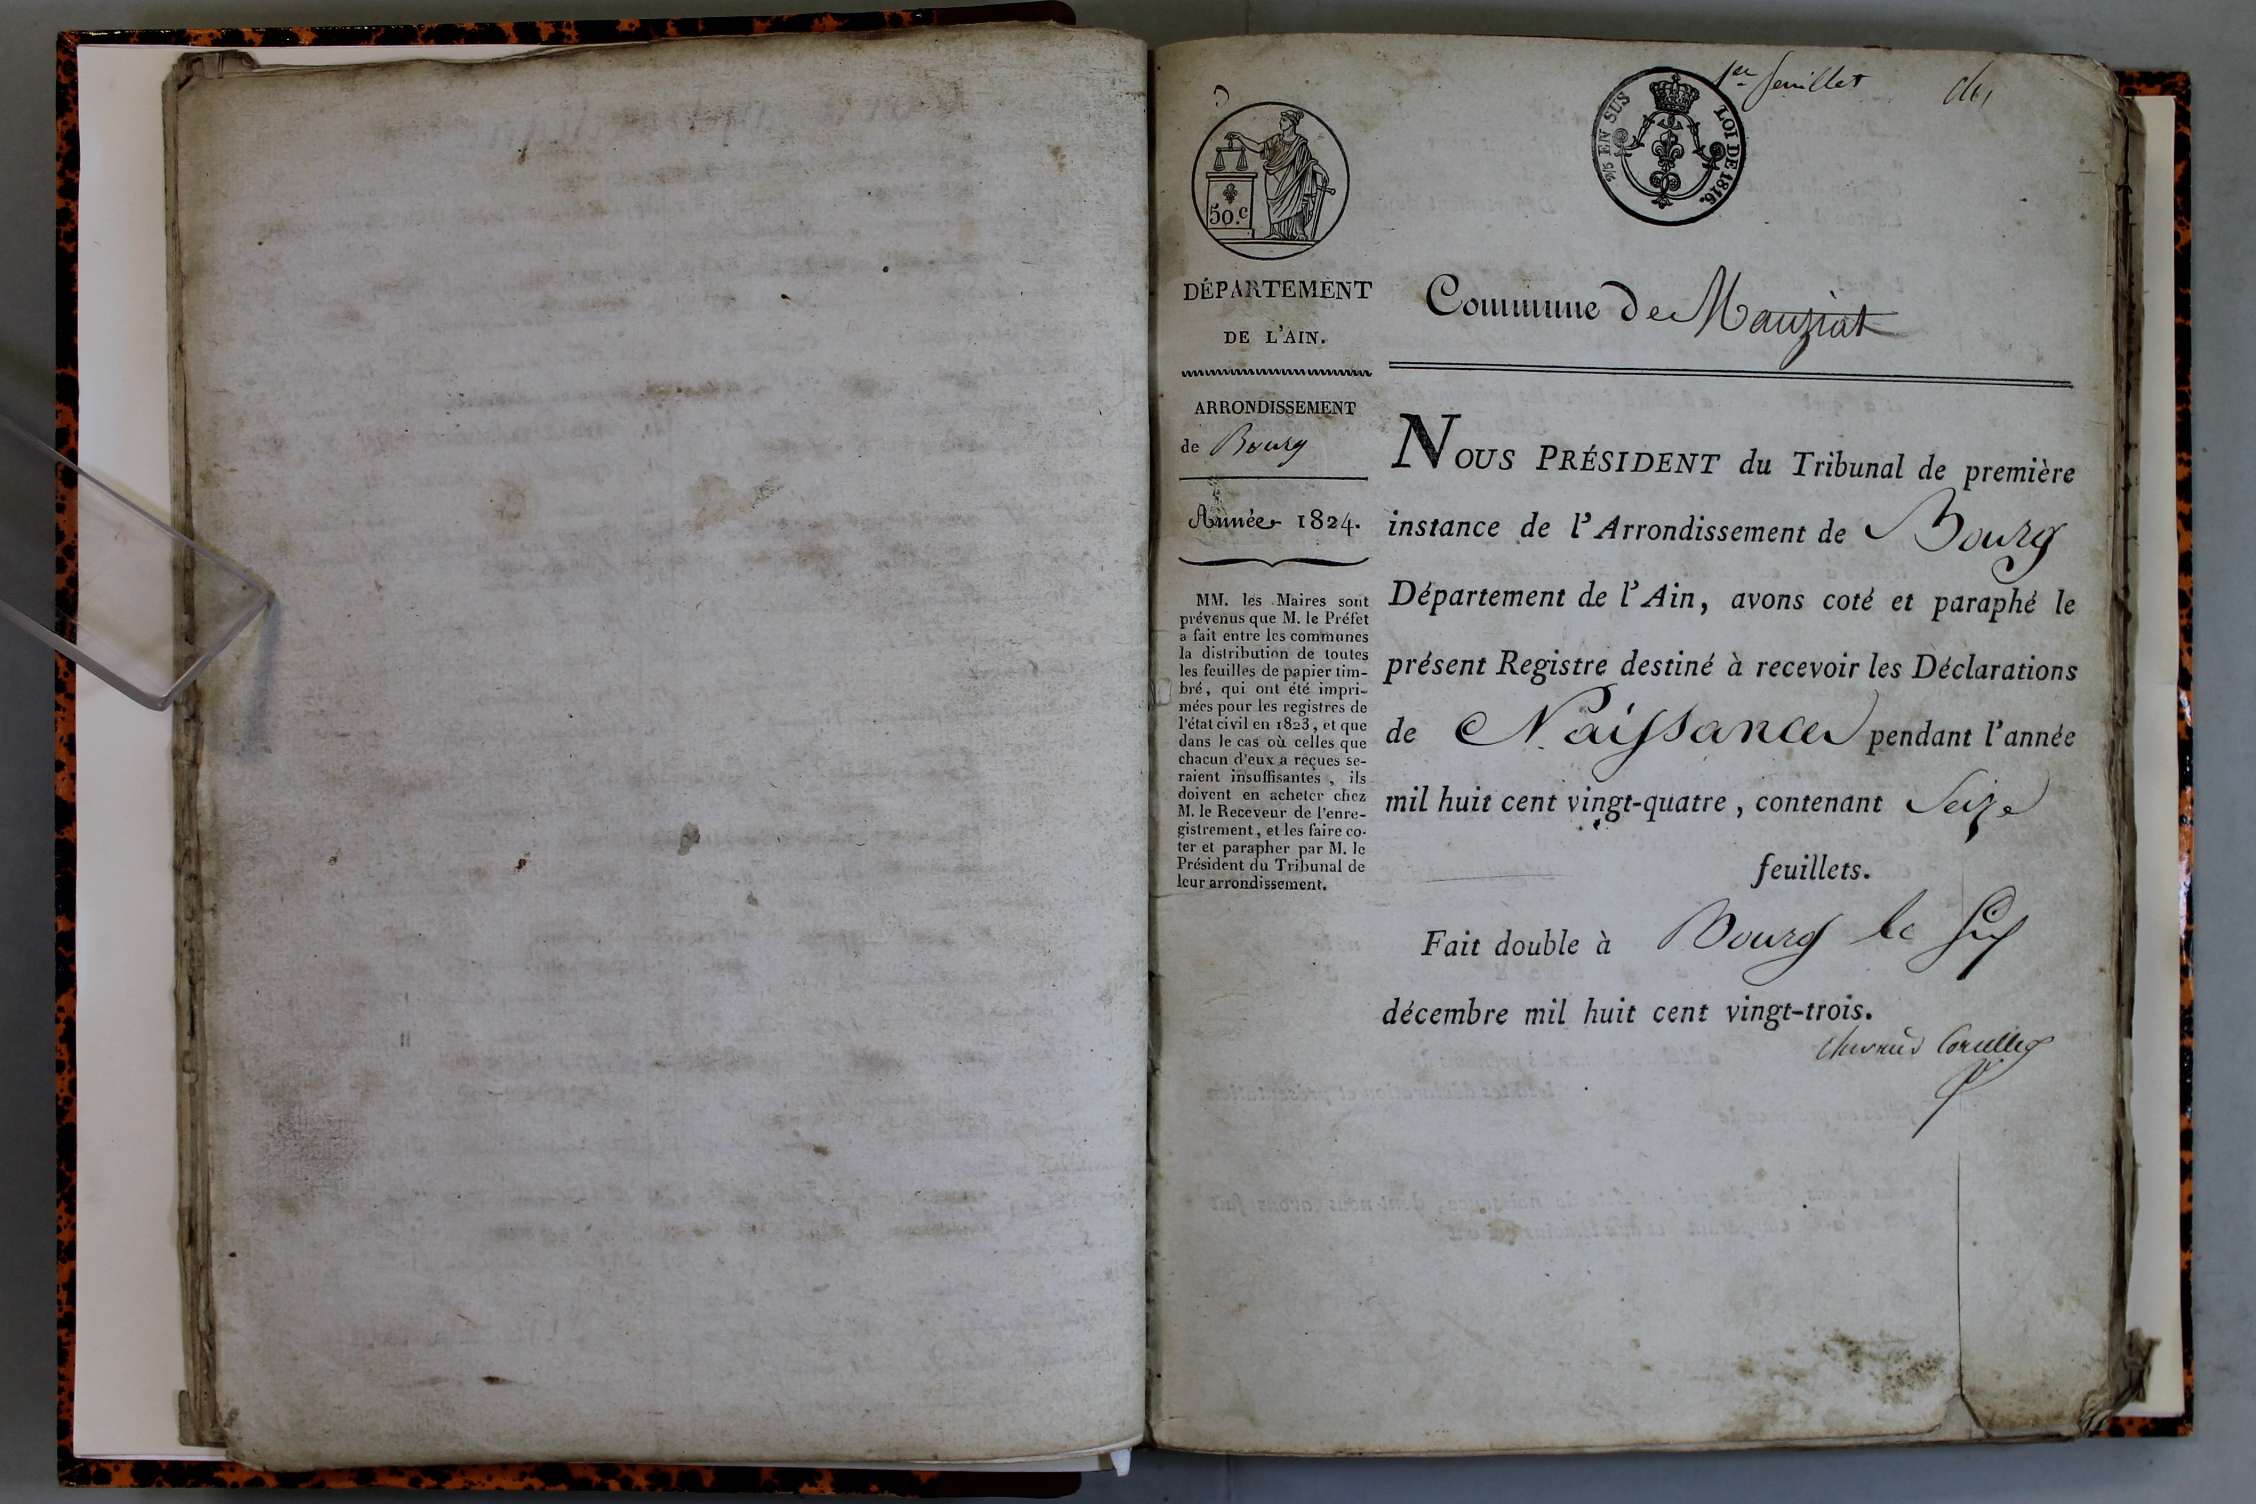 1er feuillet
50.c
2/5 EN SUS LOI DE 1816.
DÉPARTEMENT
DE L'AIN.
ARRONDISSEMENT
de Bourg
Année 1824.
MM. les Maires sont
prévenus que M. le Préfet
a fait entre les communes
la distribution de toutes
les feuilles de papier tim-
bré, qui ont été impri-
mées pour les registres de
l'état civil en 1823, et que
dans le cas où celles que
chacun d'eux a reçues se-
raient insuffisantes, ils
doivent en acheter chez
M. le Receveur de l'enre-
gistrement, et les faire co-
ter et parapher par M. le
Président du Tribunal de
leur arrondissement.
Commune de Manziat
NOUS PRÉSIDENT du Tribunal de première
instance de l'Arrondissement de Bourg
Département de l'Ain, avons coté et paraphé le
présent Registre destiné à recevoir les Déclarations
de Naissances pendant l'année
mil huit cent vingt-quatre, contenant Seize
feuillets.
Fait double à Bourg le
décembre mil huit cent vingt-trois.